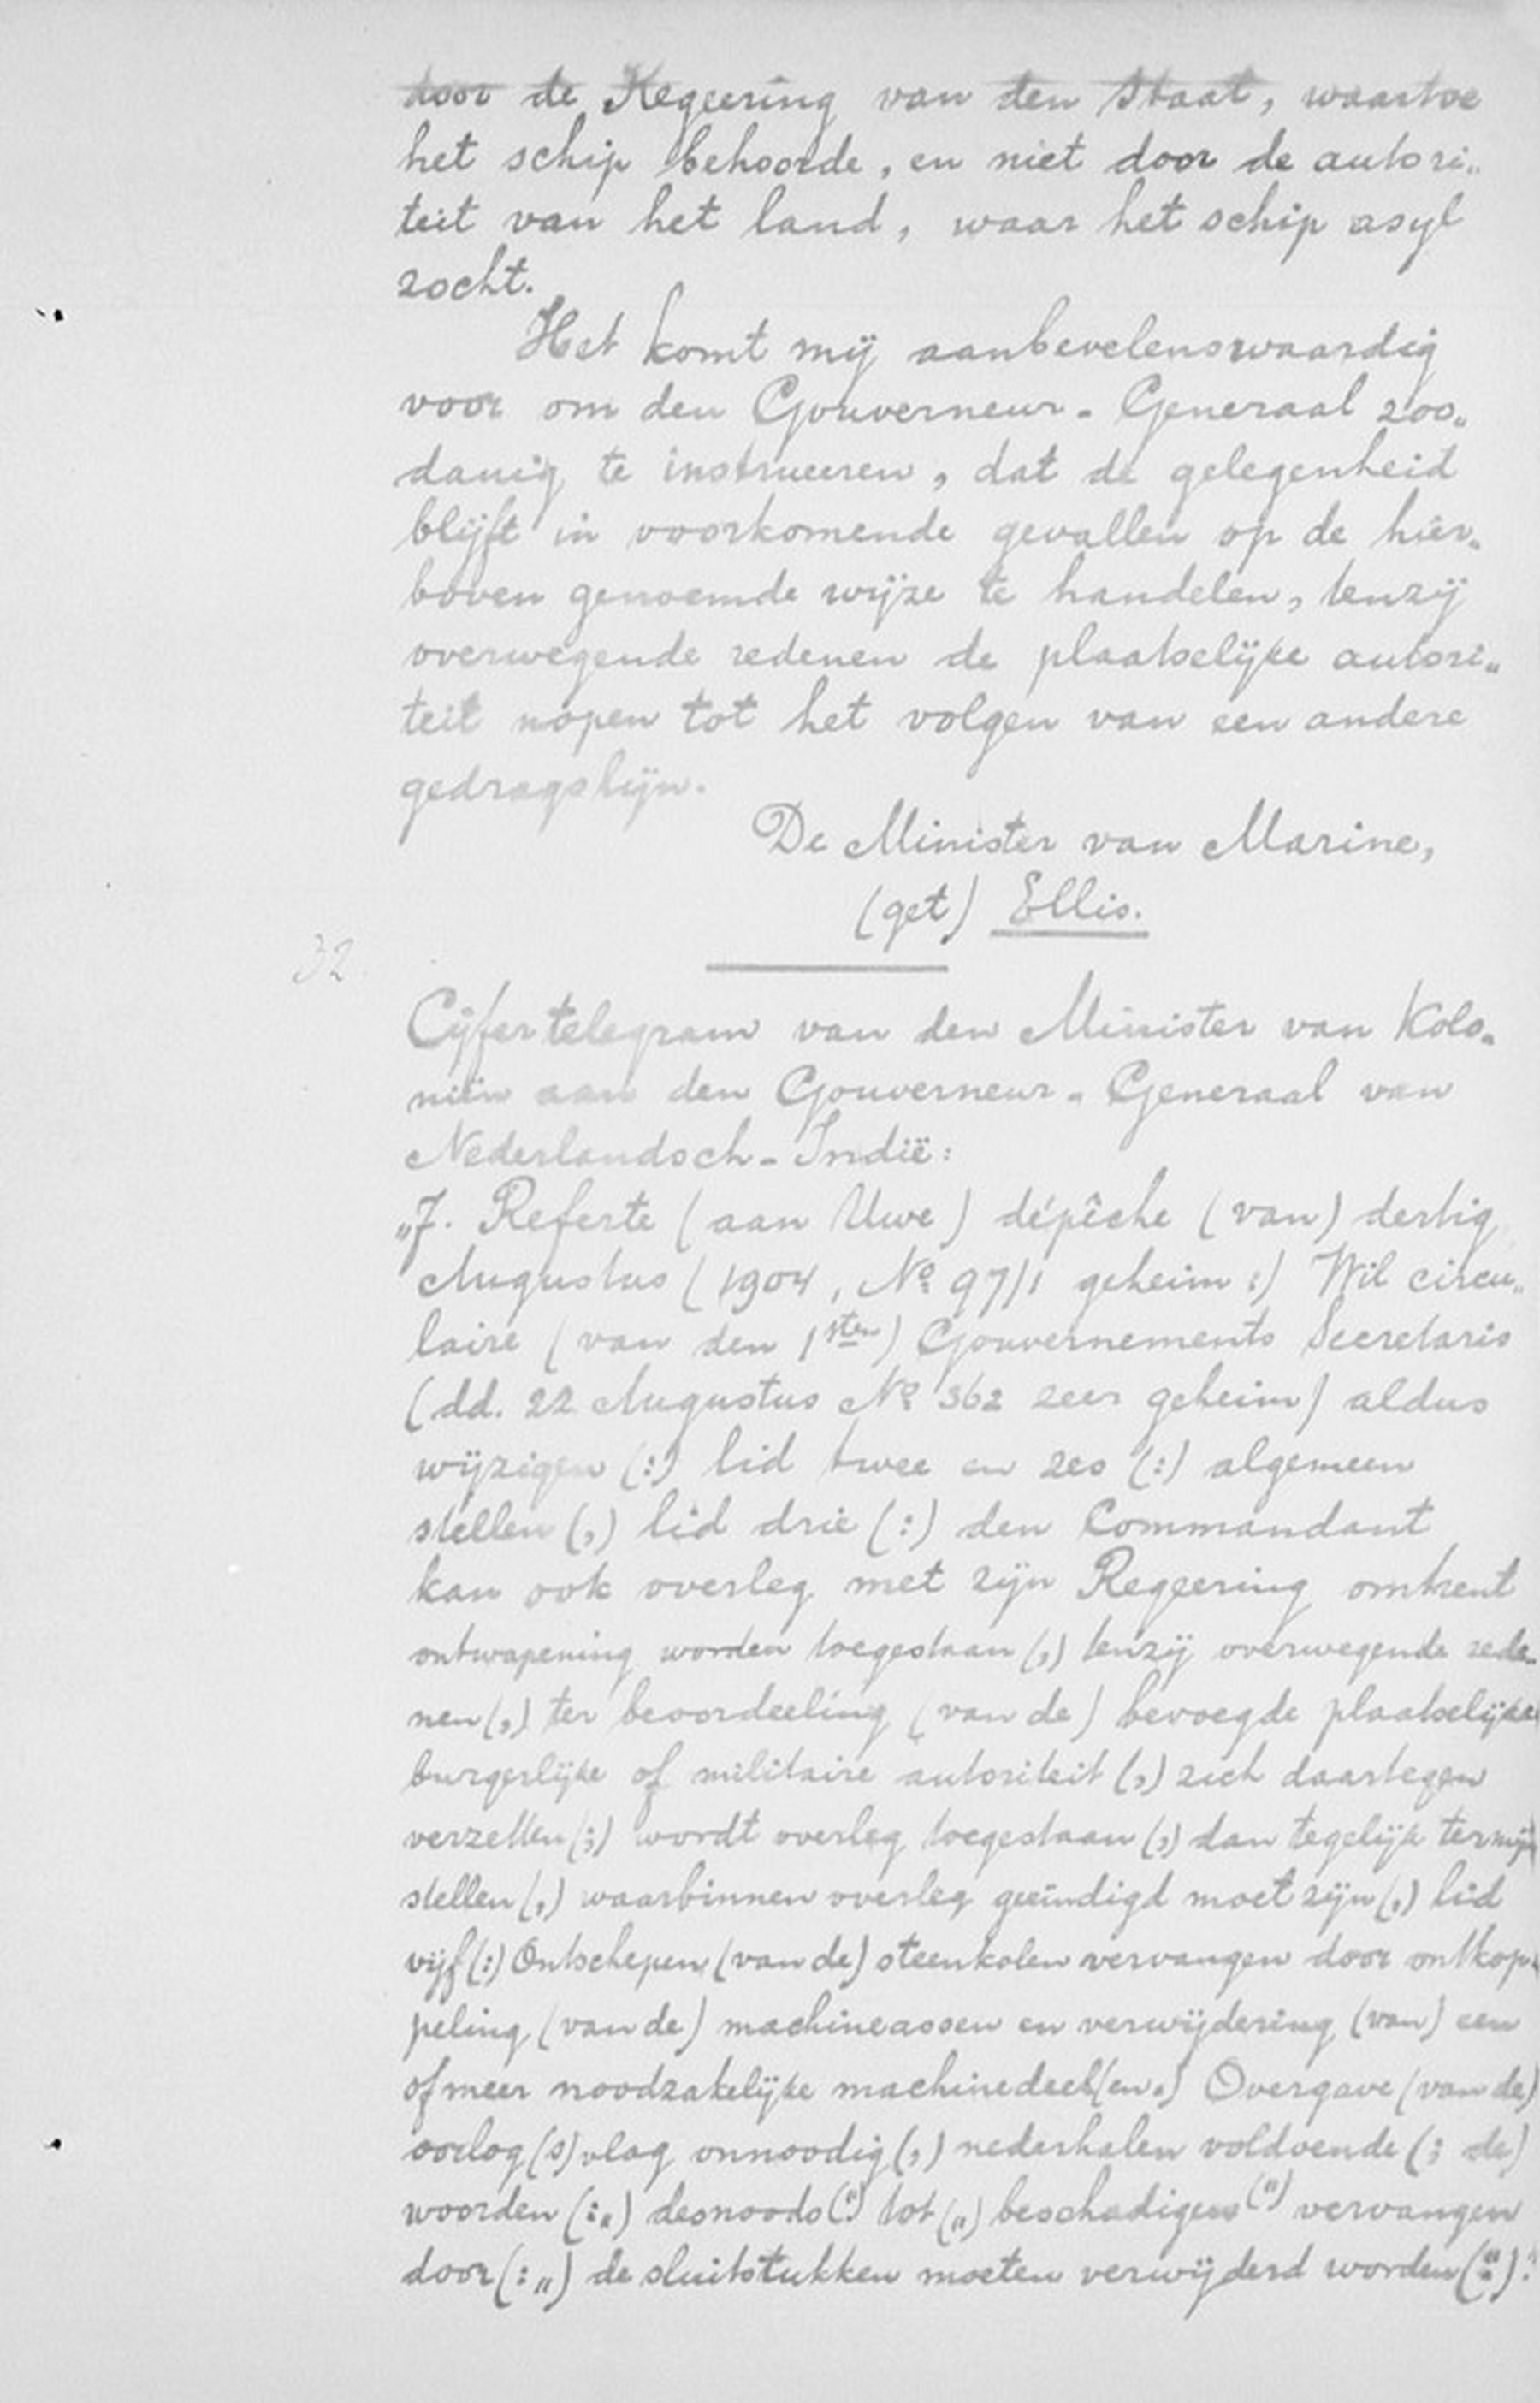 door de Regeering van den Staat, waartoe
het schip behoorde, en niet door de autori„
teit van het land, waar het schip asyl
zocht.
Het komt mij aanbevelenswaardig
voor om den Gouverneur-Generaal zoo„
danig te instrueeren, dat de gelegenheid
blijft in voorkomende gevallen op de hier„
boven genoemde wijze te handelen, tenzij
overwegende redenen de plaatselijke autori„
teit nopen tot het volgen van een andere
gedragslijn.
De Minister van Marine,
(get) Ellis.
32.
Cijfertelegram van den Minister van Kolo„
niën aan den Gouverneur-Generaal van
Nederlandsch-Indië:
„7. Referte (aan Uwe) dépêche (van) dertig
Augustus (1904, No 97/1 geheim:) Wil circu„
laire (van den 1sten) Gouvernements Secretaris
(dd. 22 Augustus No 362 zeer geheim) aldus
wijzigen (:) lid twee en zes (:) algemeen
stellen (,) lid drie (:) den Commandant
kan ook overleg met zijn Regeering omtrent
ontwapening worden toegestaan (,) tenzij overwegende rede„
nen (,) ter beoordeeling (van de) bevoegde plaatselijke
burgerlijke of militaire autoriteit (,) zich daartegen
verzetten (;) wordt overleg toegestaan (,) dan tegelijk termijn
stellen (,) waarbinnen overleg geëindigd moet zijn (,) lid
vijf (:) Ontschepen (van de) steenkolen vervangen door ontkop„
peling (van de) machineassen en verwijdering (van) een
of meer noodzakelijke machinedeel(en.) Overgave (van de)
oorlog(s)vlag onnoodig (,) nederhalen voldoende (; de)
woorden (:„) desnoods (") tot („) beschadigen (") vervangen
door (:„) de sluitstukken moeten verwijderd worden (").